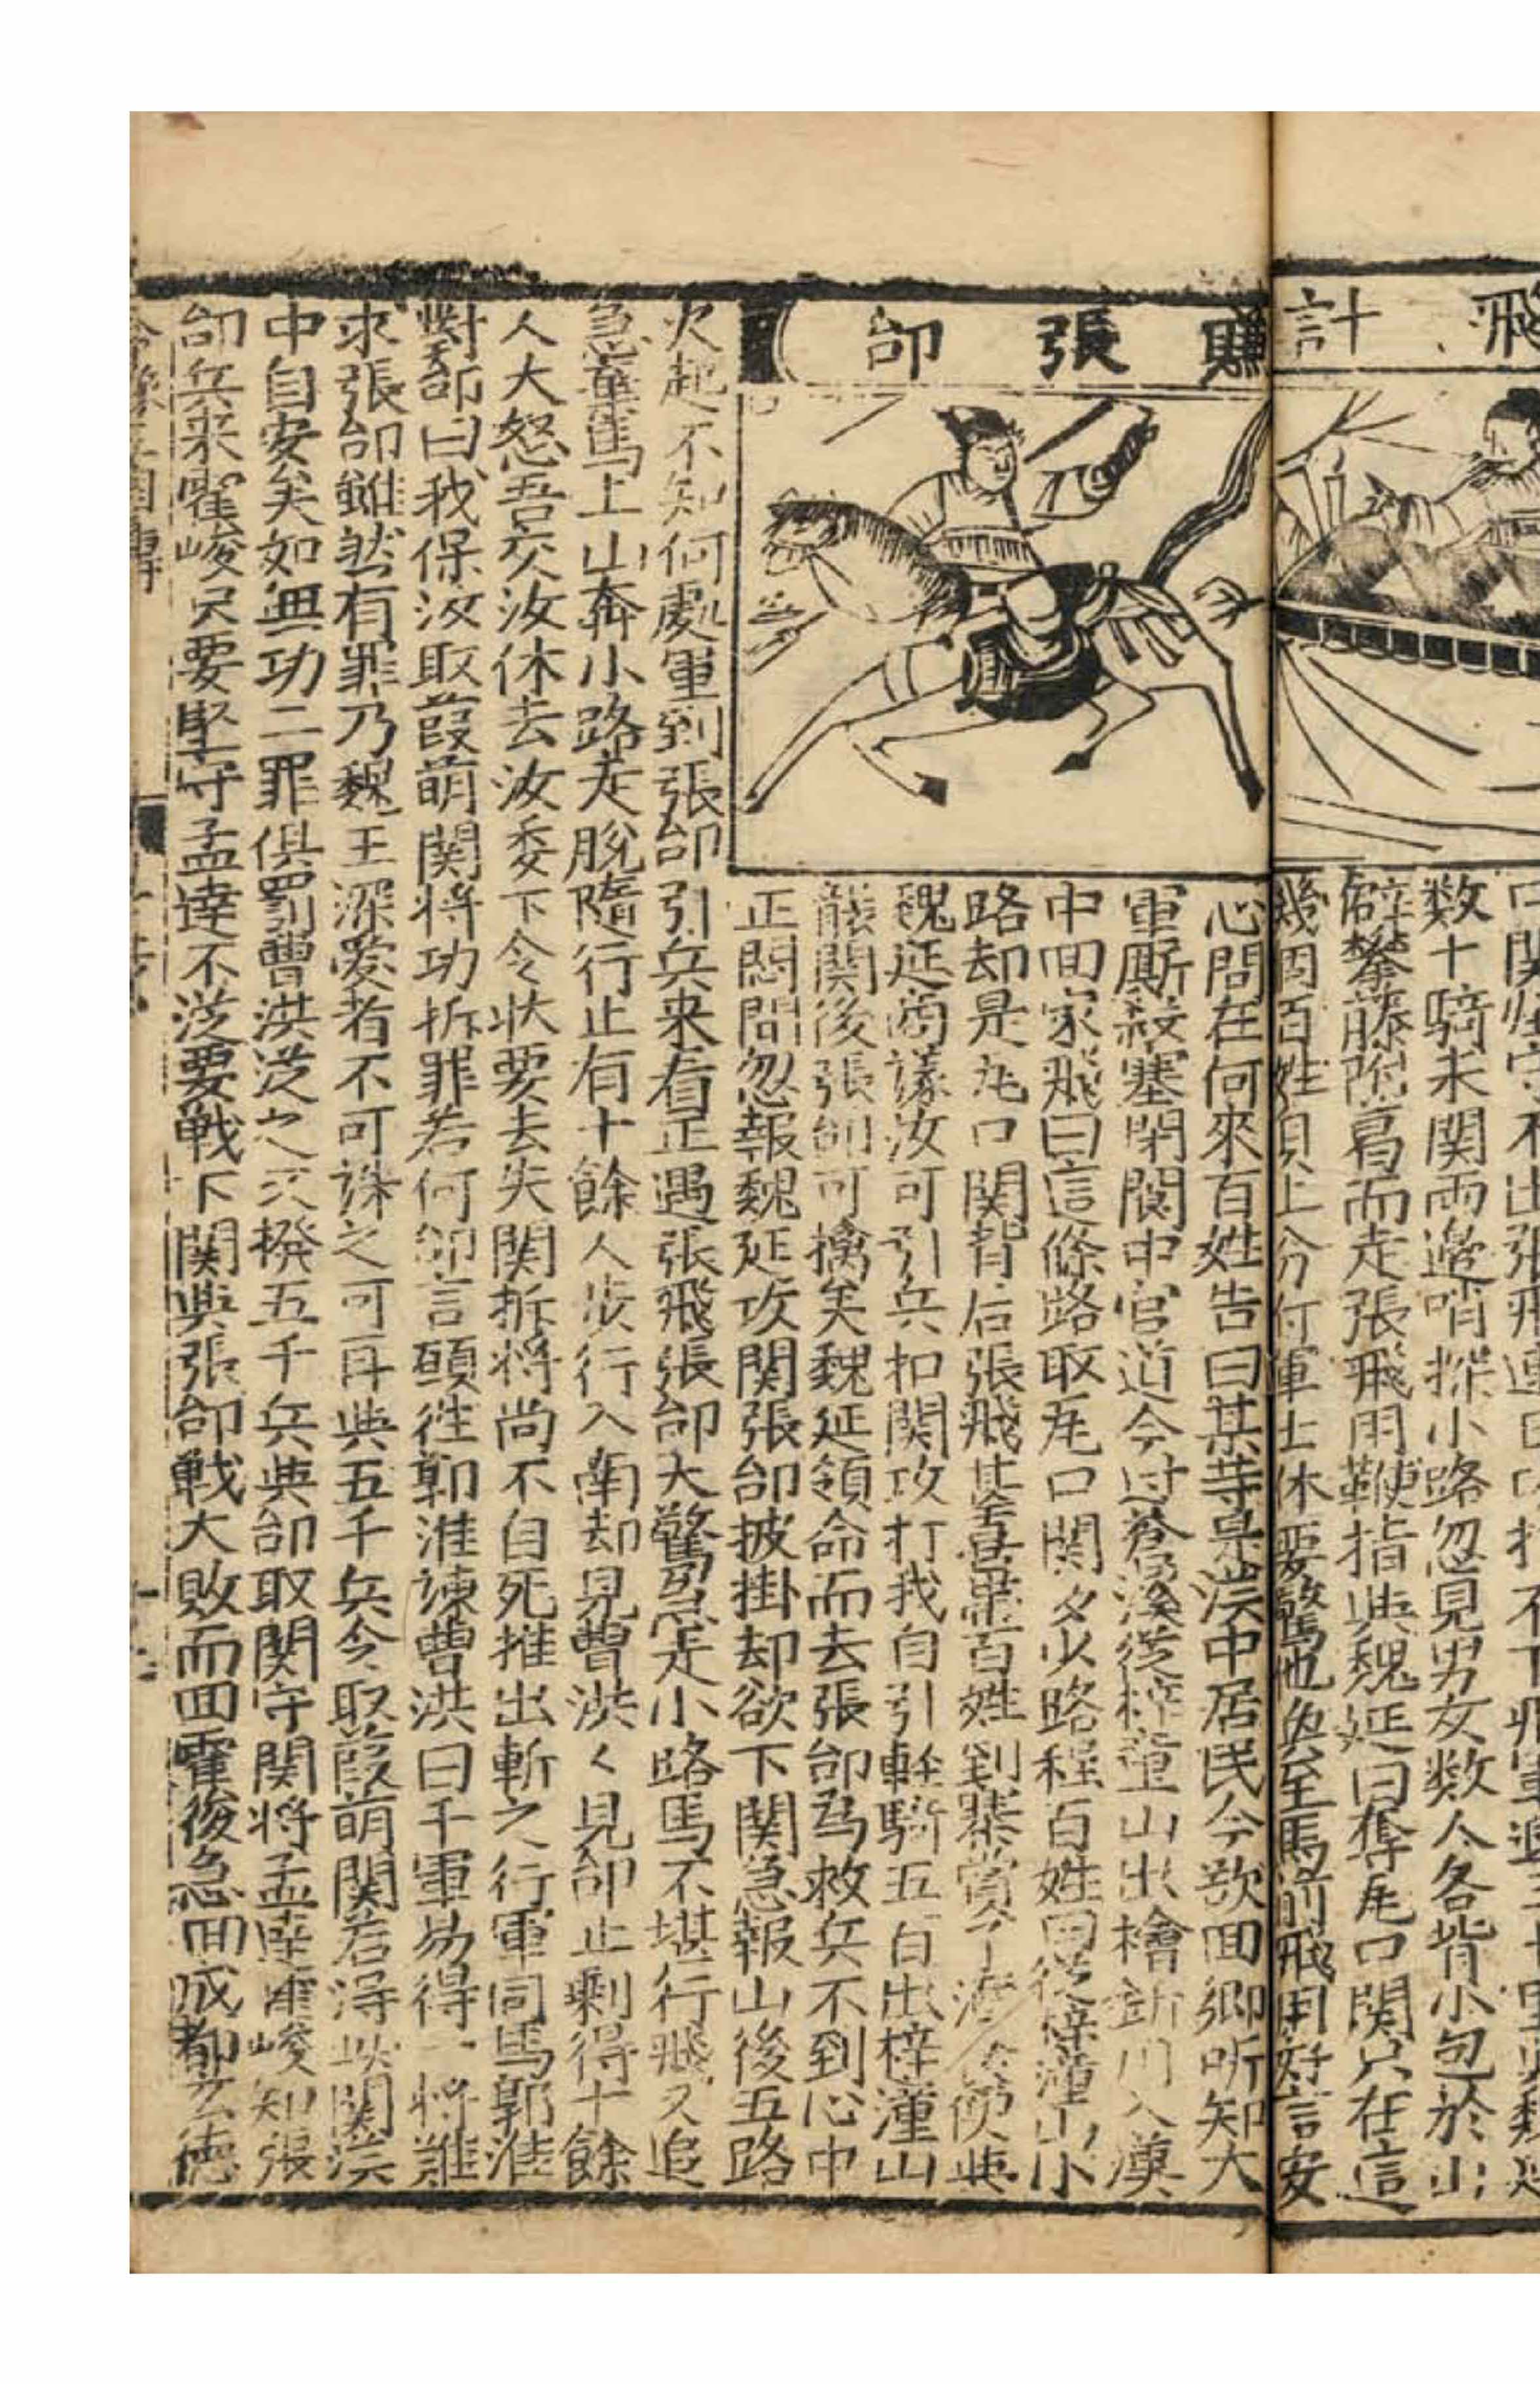 飛計
賺張郃
数十騎来関兩邉哨探小路忽見男女数人各背小包於山
攀藤附葛而走張飛用鞭指與魏延曰奪瓦口関只在這
幾個百姓身上分付軍士休要驚他與至馬前飛用好言安
心問在何來百姓告曰某等是漢中居民今欲回鄉听知大
軍厮殺塞閉閬中官道今过蒼溪從梓潼山出檜釿川入漢
中回家飛曰這條路取瓦口関多少路程百姓曰從梓潼山小
路却是瓦口関背后張飛甚喜帶百姓到寨賞令酒食便與
魏延商議汝可引兵扣関攻打我自引輕騎五百出梓潼山
襲関後張郃可擒矣魏延領命而去張郃為救兵不到心中
正悶間忽報魏延攻関張郃披掛却欲下関急報山後五路
火起不知何處軍到張郃引兵来看正遇張飛張郃大驚急走小路馬不堪行飛又追
急棄馬上山奔小路走脫隨行止有十餘人步行入南却見曹洪々見郃止剩得十餘
人大怒吾交汝休去汝委下令状要去失関折将尚不自死推出斬之行軍司馬郭淮
對郃曰我保汝取葭萌関将功折罪若何郃言願徃郭淮諫曹洪曰千軍易得一将難
求張郃雖然有罪乃魏王深愛者不可誅之可再與五千兵令取葭萌関若得此関漢
中自安矣如無功二罪俱罰曹洪從之又撥五千兵與郃取関守関将孟達霍峻知張
郃兵来霍峻只要堅守孟達不從要戰下関與張郃戰大敗而回霍後急回成都玄德